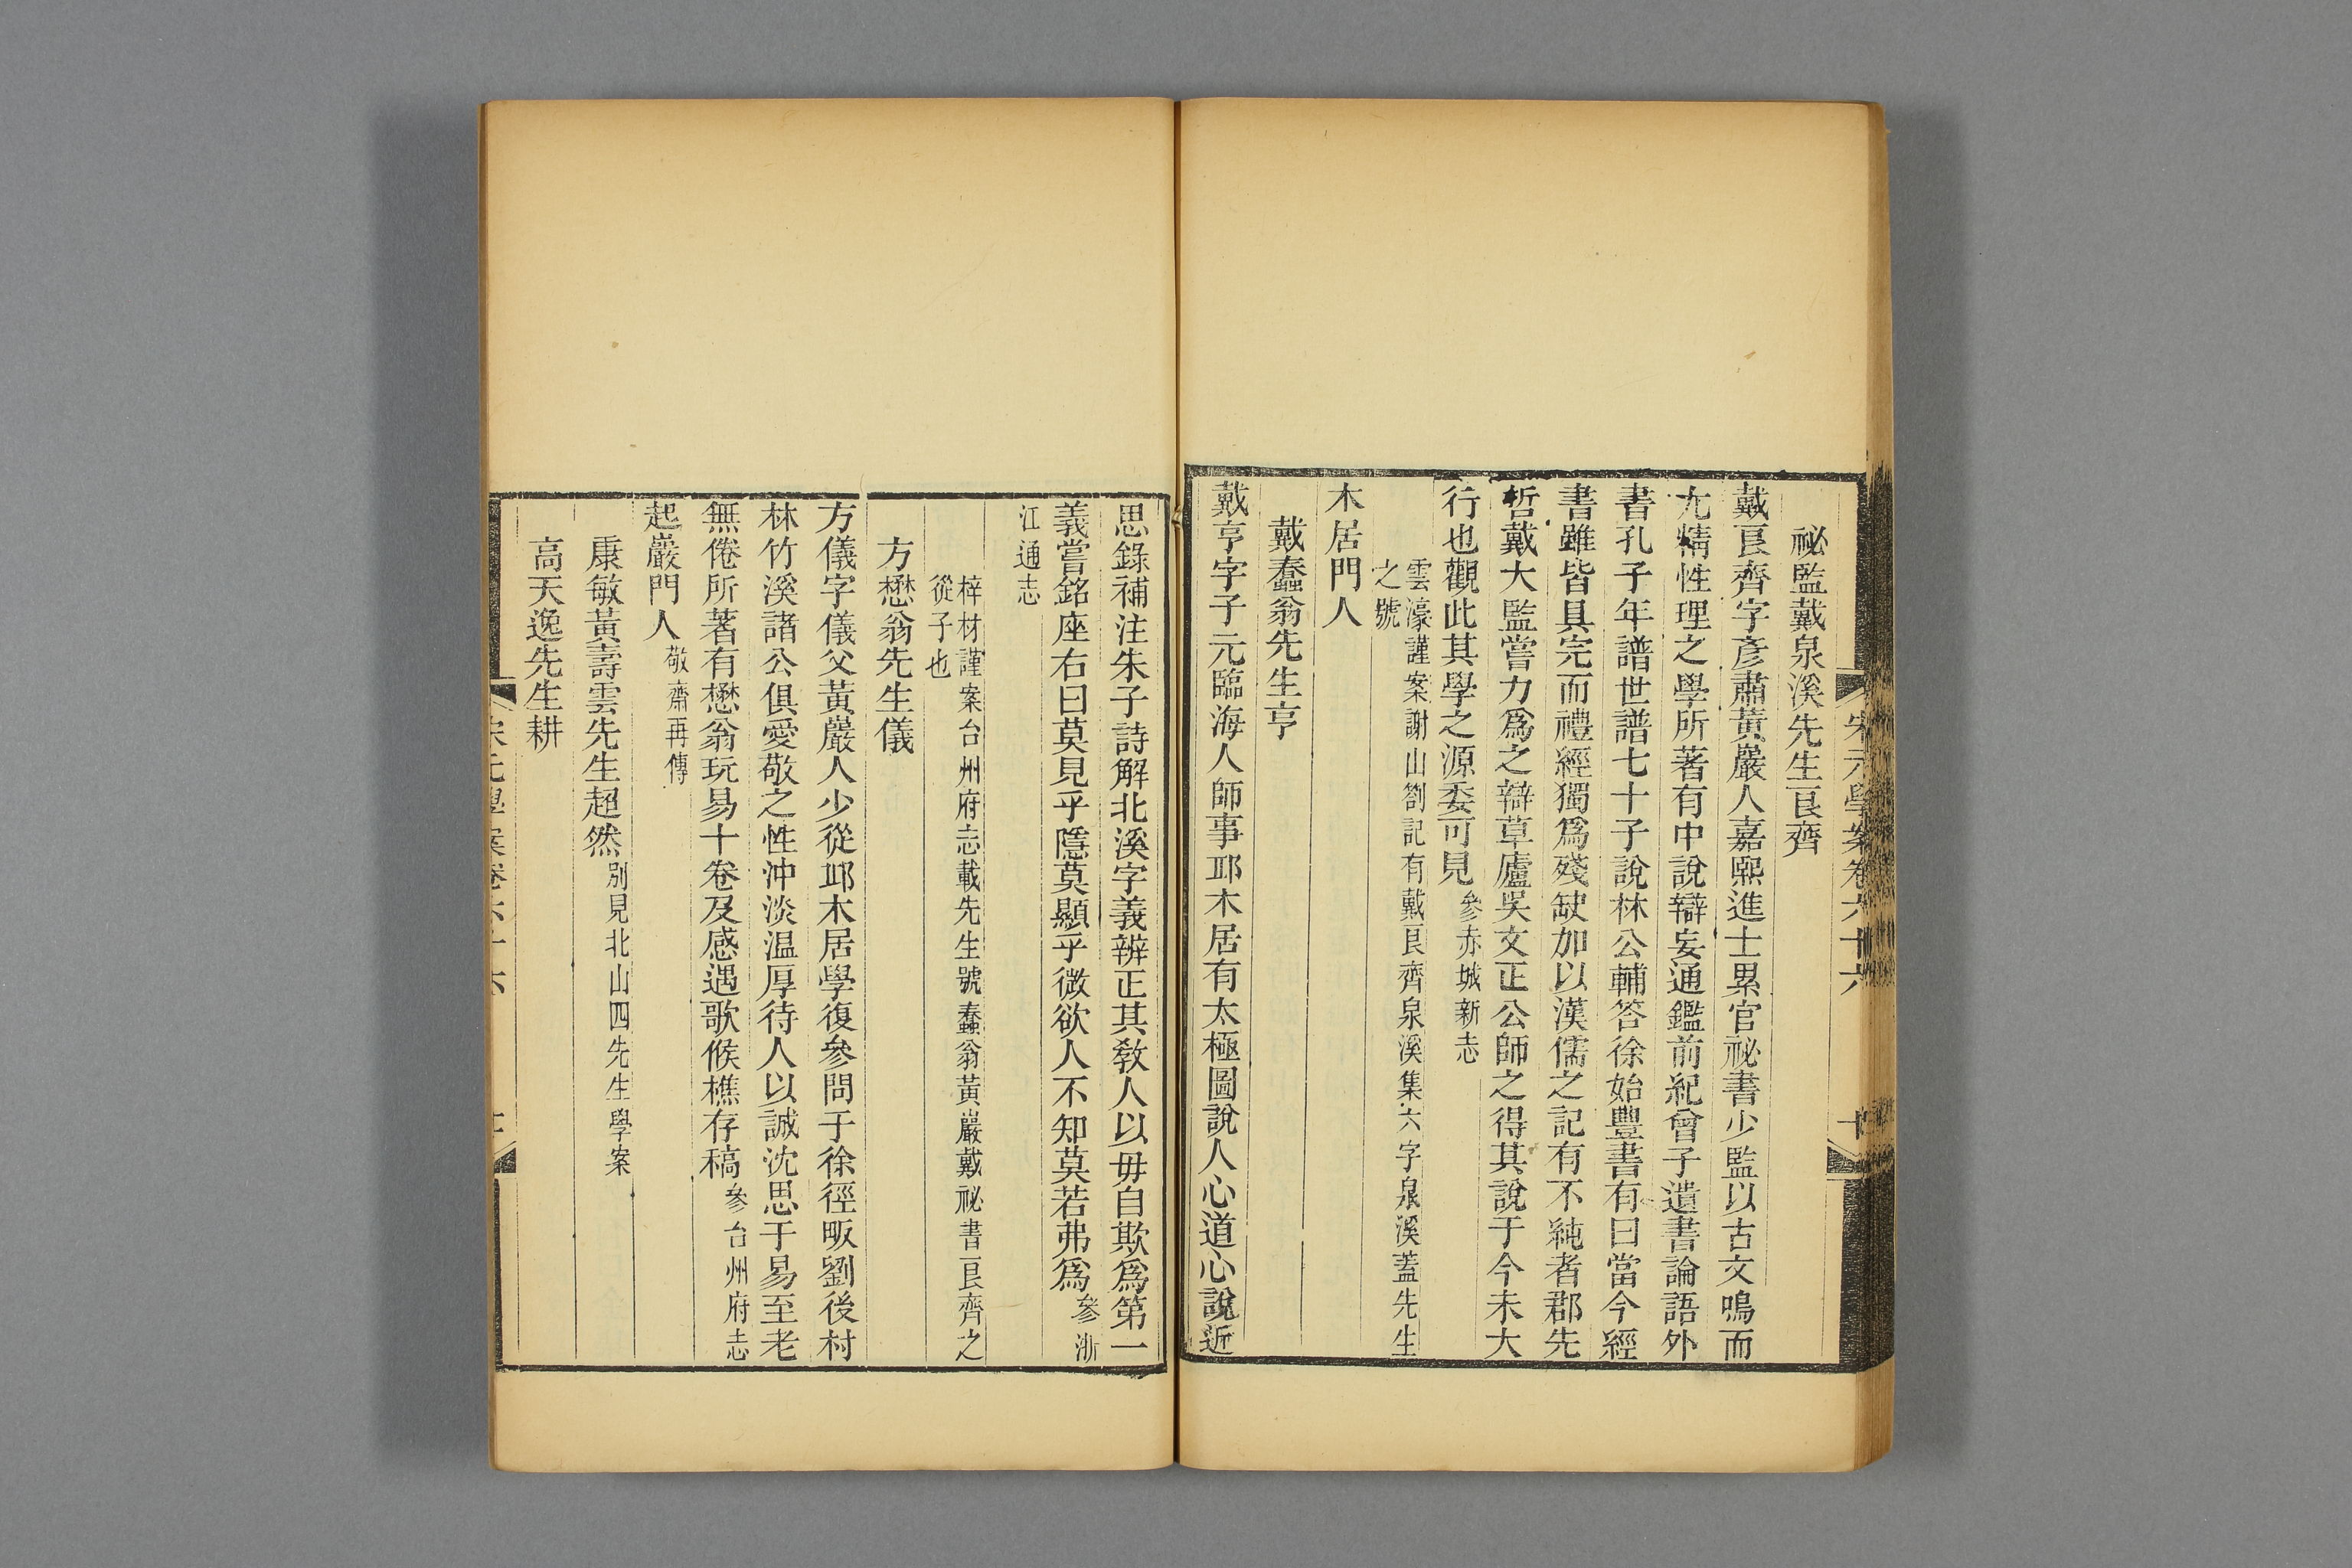 宋元學案卷六十六 十
祕監戴泉溪先生良齊
戴良齊字彥肅黃巖人嘉熙進士累官祕書少監以古文鳴而
尢精性理之學所著有中說辯妄通鑑前紀曾子遺書論語外
書孔子年譜世譜七十子說林公輔答徐始豐書有曰當今經
書雖皆具完而禮經獨爲殘缺加以漢儒之記有不純者郡先
哲戴大監嘗力爲之辯草廬吳文正公師之得其說于今未大
行也觀此其學之源委可見參赤城新志
雲濠謹案謝山劄記有戴艮齊泉溪集六字泉溪蓋先生
之號
木居門人
戴蠢翁先生亨
戴亨字子元臨海人師事邱木居有太極圖說人心道心說近
思錄補注朱子詩解北溪字義辨正其敎人以毋自欺爲第一
義嘗銘座右曰莫見乎隱莫顯乎微欲人不知莫若弗爲參浙
江通志
梓材謹案台州府志載先生號蠢翁黃巖戴祕書艮齊之
從子也
方懋翁先生儀
方儀字儀父黃巖人少從邱木居學復參問于徐徑畈劉後村
林竹溪諸公俱愛敬之性沖淡温厚待人以誠沈思于易至老
無倦所著有懋翁玩易十卷及感遇歌候樵存稿參台州府志
起巖門人敬齋再傳
康敏黃壽雲先生超然別見北山四先生學案
高天逸先生耕
宋元學案卷六十六